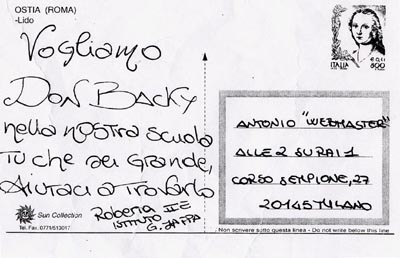 OSTIA (ROMA)
-Lido
Vogliamo
DON BACKY
nella nostra scuola
TU che sei GRANDE,
Aiutaci a trovarlo
Roberta II E
ISTITUTO
G.
Sun Collection
Tel. Fax. 0771/513017
ITALIA
€ 0,41
800
ANTONIO "WEBMASTER"
ALLE 2 SU RAI 1
CORSO SEMPIONE, 27
20145 MILANO
Non scrivere sotto questa linea - Do not write below this line